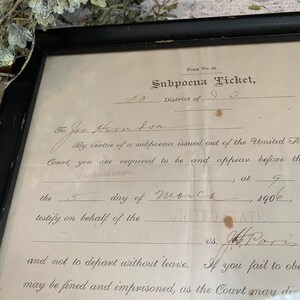 Form No. 
Subpoena Ticket,
District of
To Jas Herndon
By virtue of a subpoena issued out of the United
Court, you are required to be and appear before th
, at 9
the 5 day of March , 1906
testify on behalf of the UNITED STATES
vs.
and not to depart without leave. If you fail to obe
may be fined and imprisoned, as the Court may di